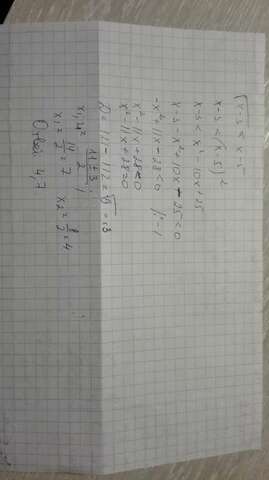 √x-3 < x-5
x-3 < (x-5)²
x-3 < x²-10x+25
x-3-x²+10x-25<0
-x²+11x-28<0 |:-1
x²-11x+28<0
x²-11x+28=0
D= 121-112=√9=±3
x₁,₂= 11±3/2
x₁= 14/2=7 x₂= 8/2=4
Ответ 4,7